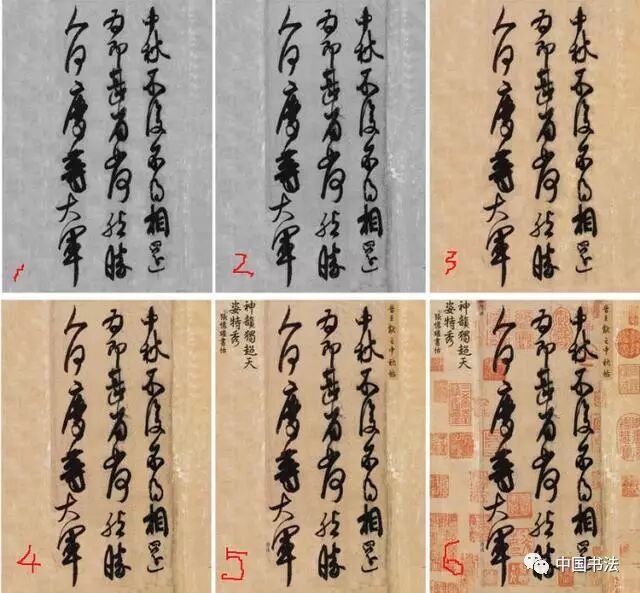 中秋不復不得相還
為即甚省如何然勝
人何慶等大軍
1
中秋不復不得相還
為即甚省如何然勝
人何慶等大軍
2
中秋不復不得相還
為即甚省如何然勝
人何慶等大軍
3
中秋不復不得相還
為即甚省如何然勝
人何慶等大軍
4
晉王獻之中秋帖
中秋不復不得相還
為即甚省如何然勝
人何慶等大軍
神韻獨超天
姿特秀
張懷瓘書估
5
晉王獻之中秋帖
中秋不復不得相還
為即甚省如何然勝
人何慶等大軍
神韻獨超天
姿特秀
張懷瓘書估
6
中国书法